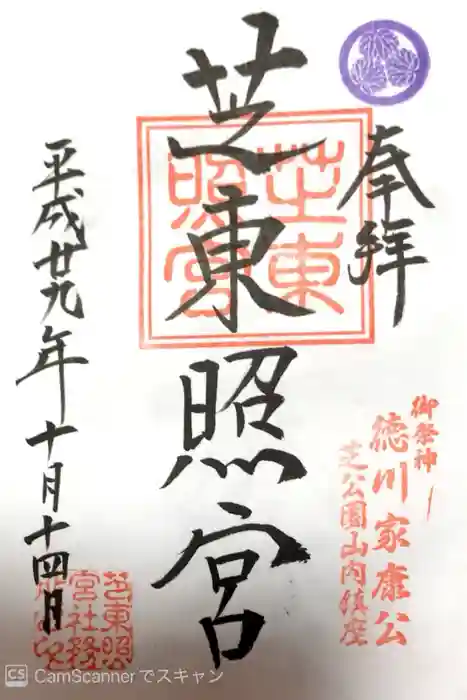 奉拝
御祭神
徳川家康公
芝公園山内鎮座
芝東照宮
芝東
照宮
平成廿九年十月十四日
芝東照
宮社務
CS CamScanner でスキャン